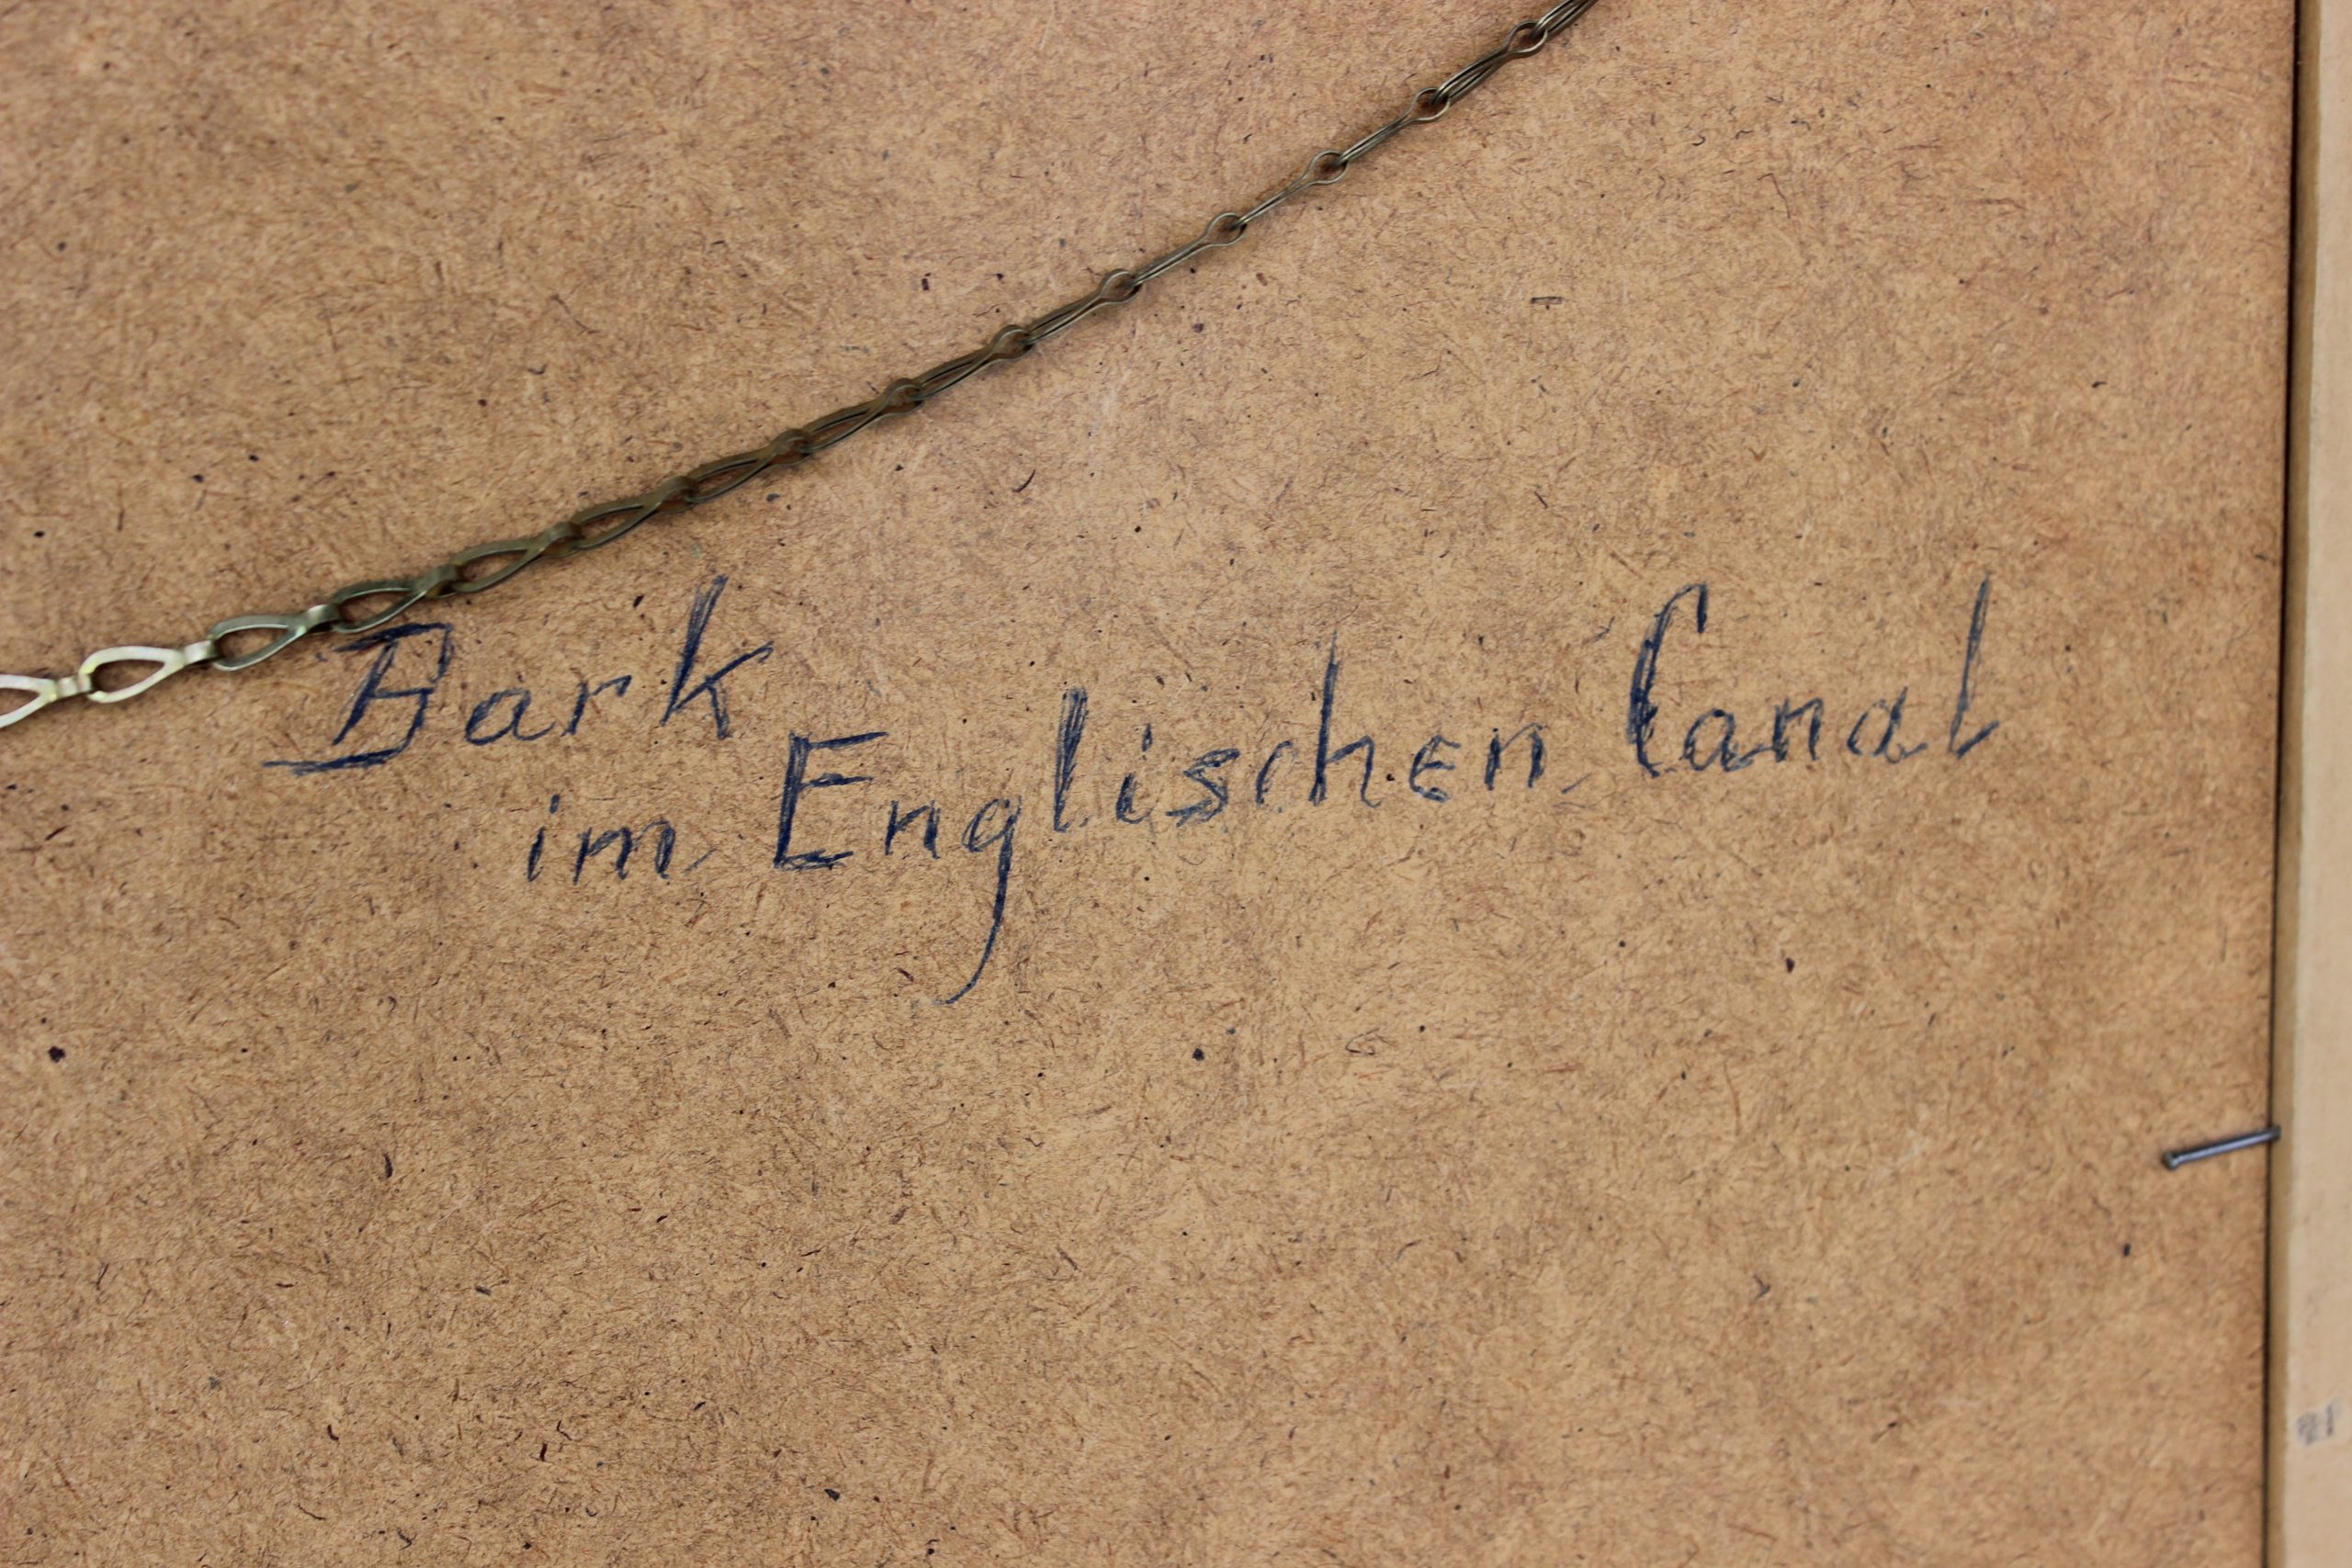 Bark
im Englischen Canal